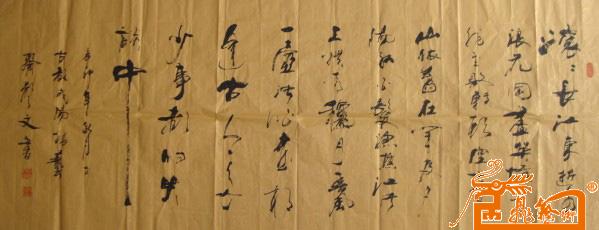 滚々长江东逝水
浪花淘尽英雄是
非成败转头空青
山依旧在几度夕
阳红白发渔樵江渚
上惯看秋月春风
一壶浊酒喜相
逢古今多
少事都付笑
谈中
辛卯年秋月于